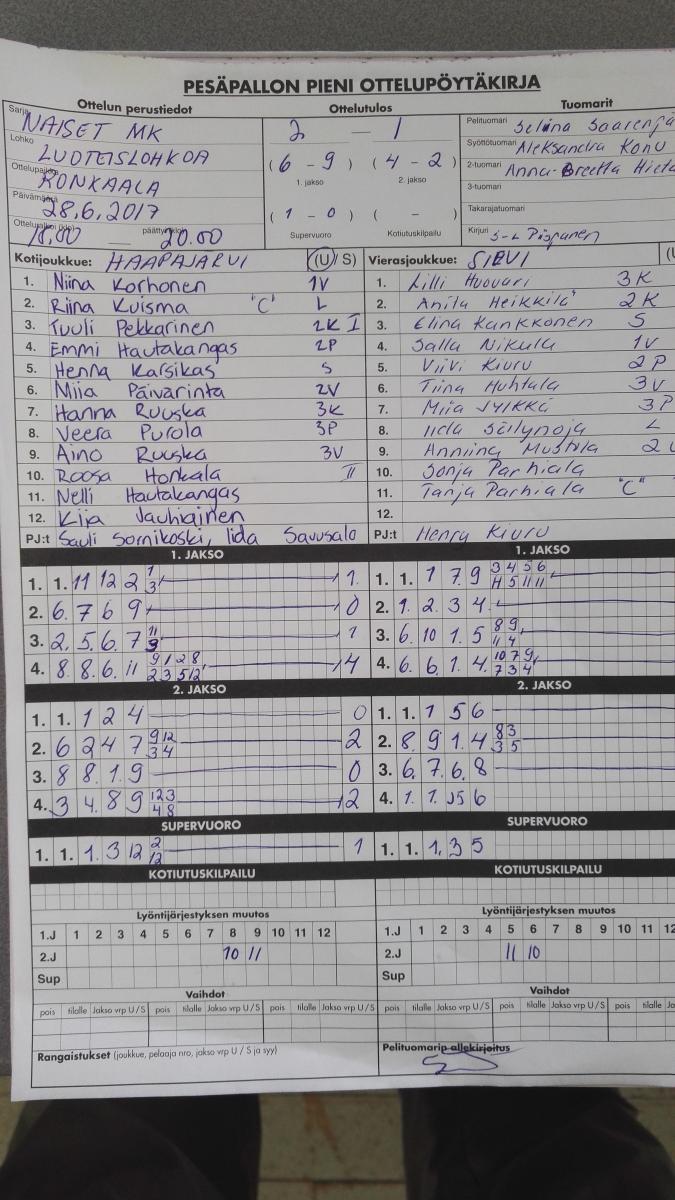 PESÄPALLON PIENI OTTELUPÖYTÄKIRJA
Ottelun perustiedot Ottelutulos Tuomarit
Sarja NAISET MK
Lohko LUOTEISLOHKOA
Ottelupaikka RONKAALA
Päivämäärä 28.6.2017
Otteluaika (klo) 18.00 — päättyi (klo) 20.00
2 — 1
(6 - 9) (4 - 2)
1. jakso 2. jakso
(1 - 0) ( - )
Supervuoro Kotiutuskilpailu
Pelituomari Selina
Syöttötuomari Aleksandra Konu
2-tuomari Anna-Greetta
3-tuomari
Takarajatuomari
Kirjuri S-L Piispanen
Kotijoukkue: HAAPAJÄRVI (U/S)
1. Niina Korhonen 1V
2. Riina Kuisma "C" L
3. Tuuli Pekkarinen 2K I
4. Emmi Hautakangas 2P
5. Henna Karsikas S
6. Miia Päivärinta 2V
7. Hanna Ruuska 3K
8. Veera Purola 3P
9. Aino Ruuska 3V
10. Roosa Honkala II
11. Nelli Hautakangas
12. Kija Jauhiainen
PJ:t Sauli Sornikoski, Iida Savusalo
Vierasjoukkue: SIEVI (U
1. Lilli Huovari 3K
2. Anita Heikkilä 2K
3. Elina Kankkonen S
4. Salla Nikula 1V
5. Viivi Kiuru 2P
6. Tiina Huhtala 3V
7. Miia Jylkkä 3P
8. Iida Säilynoja L
9. Anniina Mustila 2
10. Sonja Parhiala
11. Tanja Parhiala "C"
12.
PJ:t Henry Kiuru
1. JAKSO
1. 1. 11 12 2 1 3 1
2. 6. 7 6 9 0
3. 2. 5. 6. 7 11 9 1
4. 8. 8. 6. 11 9 1 2 8 2 3 5 12 4
2. JAKSO
1. 1. 1 2 4 0
2. 6 2 4 7 9 12 3 4 2
3. 8 8. 1. 9 0
4. 3 4. 8 9 12 3 4 8 2
SUPERVUORO
1. 1. 1. 3 12 2 12 1
KOTIUTUSKILPAILU
Lyöntijärjestyksen muutos
1.J 1 2 3 4 5 6 7 8 9 10 11 12
2.J 10 11
Sup
Vaihdot
pois tilalle Jakso vrp U/S pois tilalle Jakso vrp U/S pois tilalle Jakso vrp U/S
Rangaistukset (joukkue, pelaaja nro, jakso vrp U / S ja syy)
1. JAKSO
1. 1. 1 7. 9 3 4 5 6 11 5 11 11
2. 1. 2. 3 4.
3. 6. 10 1. 5 8 9 11 4
4. 6. 6. 1. 4. 10 7 9 7 3 4
2. JAKSO
1. 1. 1 5 6
2. 8. 9 1. 4 8 3 3 5
3. 6. 7. 6. 8
4. 1. 1. 5 6
SUPERVUORO
1. 1. 1. 3 5
KOTIUTUSKILPAILU
Lyöntijärjestyksen muutos
1.J 1 2 3 4 5 6 7 8 9 10 11 12
2.J 11 10
Sup
Vaihdot
pois tilalle Jakso vrp U/S pois tilalle Jakso vrp U/S pois tilalle
Pelituomarin allekirjoitus